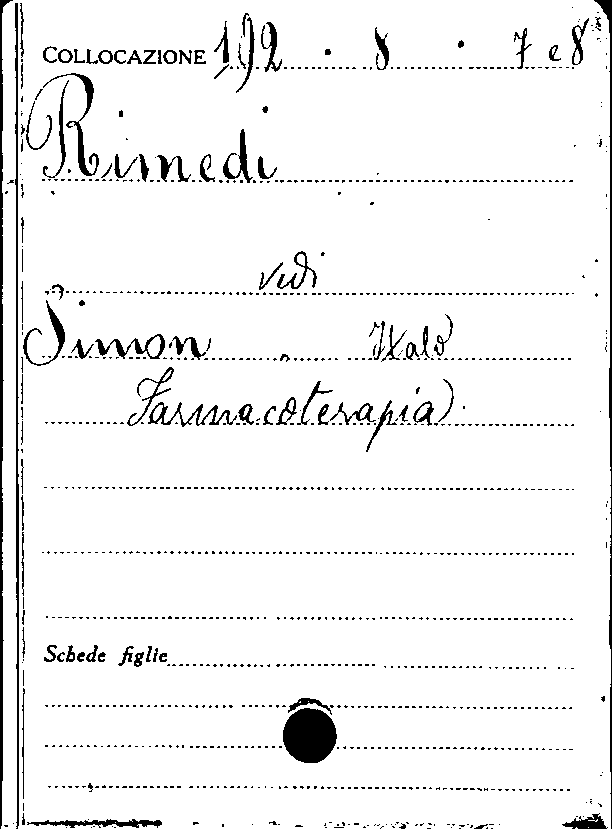 COLLOCAZIONE 192 . 8 . 7 e 8
Rimedi
vedi
Simon, Italo
Farmacoterapia.
Schede figlie